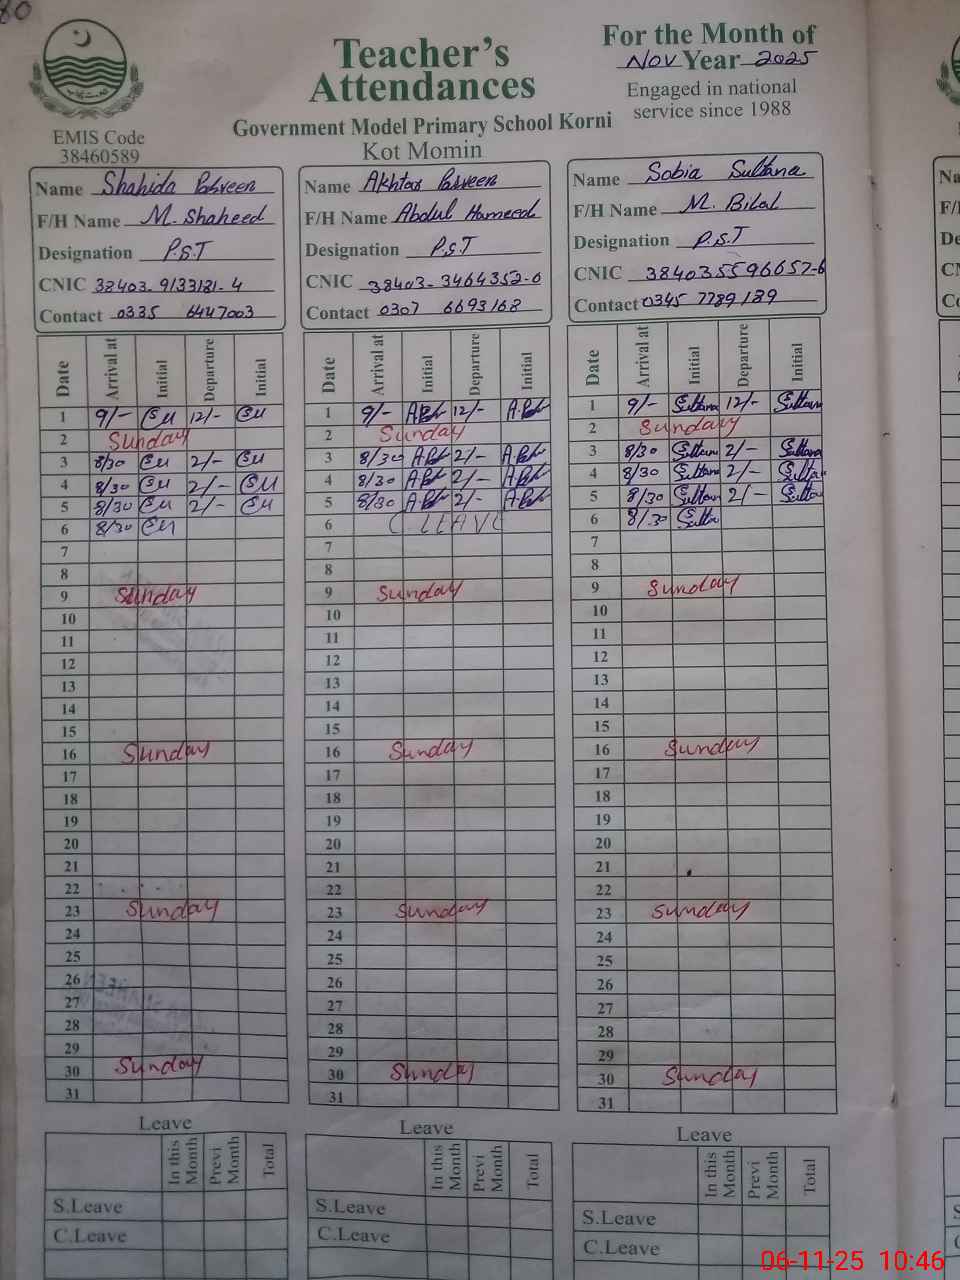 80
Teacher's
Attendances
For the Month of
Nov Year 2025
Engaged in national
service since 1988
EMIS Code
38460589
Government Model Primary School Korni
Kot Momin
Name Shahida Parveen
F/H Name M. Shaheed
Designation P.S.T
CNIC 38403-9133181-4
Contact 0335 6447003
Name Akhtar Parveen
F/H Name Abdul Hameed
Designation P.S.T
CNIC 38403-3464352-0
Contact 0307 6693168
Name Sobia Sultana
F/H Name M. Bilal
Designation P.S.T
CNIC 384035596657-6
Contact 0345 7789189
Date Arrival at Initial Departure Initial
1 9/- 12/-
2 Sunday
3 8/30 2/-
4 8/30 2/-
5 8/30 2/-
6 8/30
7
8
9 Sunday
10
11
12
13
14
15
16 Sunday
17
18
19
20
21
22
23 Sunday
24
25
26
27
28
29
30 Sunday
31
Date Arrival at Initial Departure Initial
1 9/- 12/-
2 Sunday
3 8/30 2/-
4 8/30 2/-
5 8/30 2/-
6 C. LEAVE
7
8
9 Sunday
10
11
12
13
14
15
16 Sunday
17
18
19
20
21
22
23 Sunday
24
25
26
27
28
29
30 Sunday
31
Date Arrival at Initial Departure Initial
1 9/- Sultana 12/- Sultana
2 Sunday
3 8/30 Sultana 2/- Sultana
4 8/30 Sultana 2/- Sultana
5 8/30 Sultana 2/- Sultana
6 8/30 Sultana
7
8
9 Sunday
10
11
12
13
14
15
16 Sunday
17
18
19
20
21
22
23 Sunday
24
25
26
27
28
29
30 Sunday
31
Leave
In this Month Previ Month Total
S.Leave
C.Leave
Leave
In this Month Previ Month Total
S.Leave
C.Leave
Leave
In this Month Previ Month Total
S.Leave
C.Leave
06-11-25 10:46